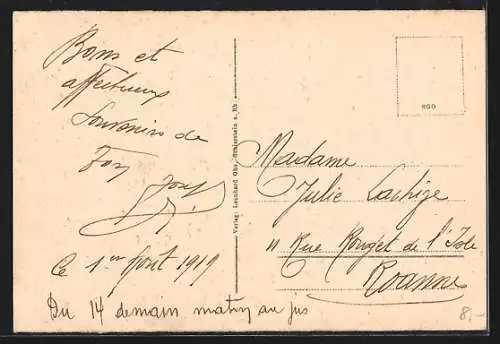 Bons et
affectueux
Souvenirs de
Ton
Josef
Ce 1er Août 1919
Du 14 demain matin au jus
Verlag: Leonhard
860
Madame
Julie Lachize
11 Rue Rouget de l'Isle
Roanne
8,-